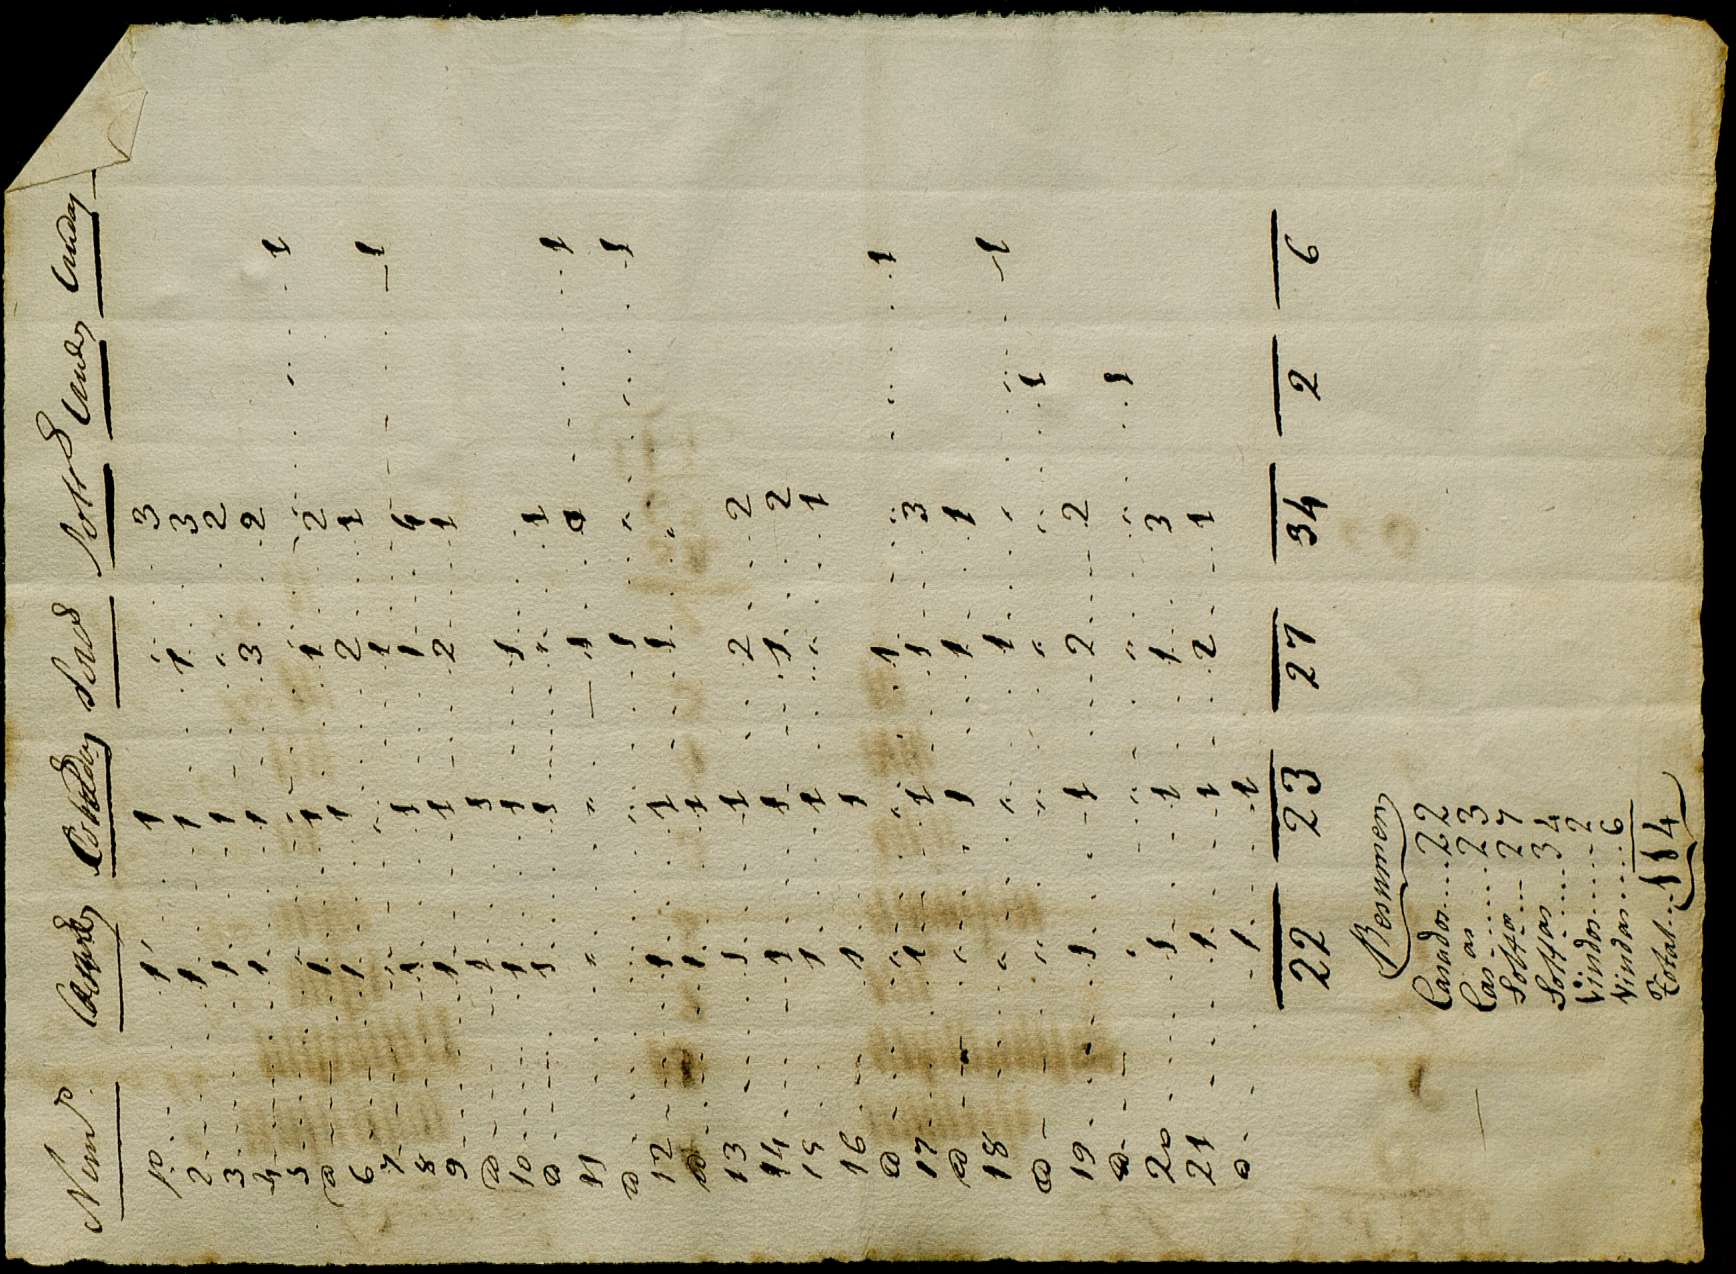 Num.º Casad.s Casadas Solt.s Solt.as Viudos Viudas
1º 1 1 " 3
2 1 1 1 3
3 1 1 " 2
4 1 1 3 2
5 " " " " " 1
@ 1 1 1 2
6 1 1 2 1
7 " " 1 " " 1
8 1 1 1 4
9 1 1 2 1
@ 1 1
10 1 1 1
@ 1 1 " 1
11 " " 1 1
@ " " 1 " " 1
12 1 1 1 "
@ 1 1
13 1 1 2 2
14 1 1 1 2
15 1 1 " 1
16 1 1
@ " " 1 " " 1
17 1 1 1 3
@ " 1 1 1
18 " " 1 " " 1
@ " " " " 1
19 1 1 2 2
@ " " " " 1
20 1 1 1 3
21 1 1 2 1
@ 1 1
22 23 27 34 2 6
Resumen
Casados....22
Cas as.....23
Solt os....27
Solt as....34
Viudos.....2
Viudas.....6
Total...114